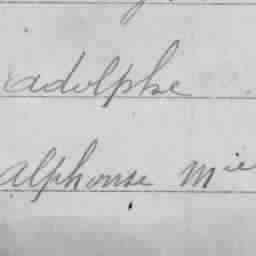 adolphe
alphonse Mie